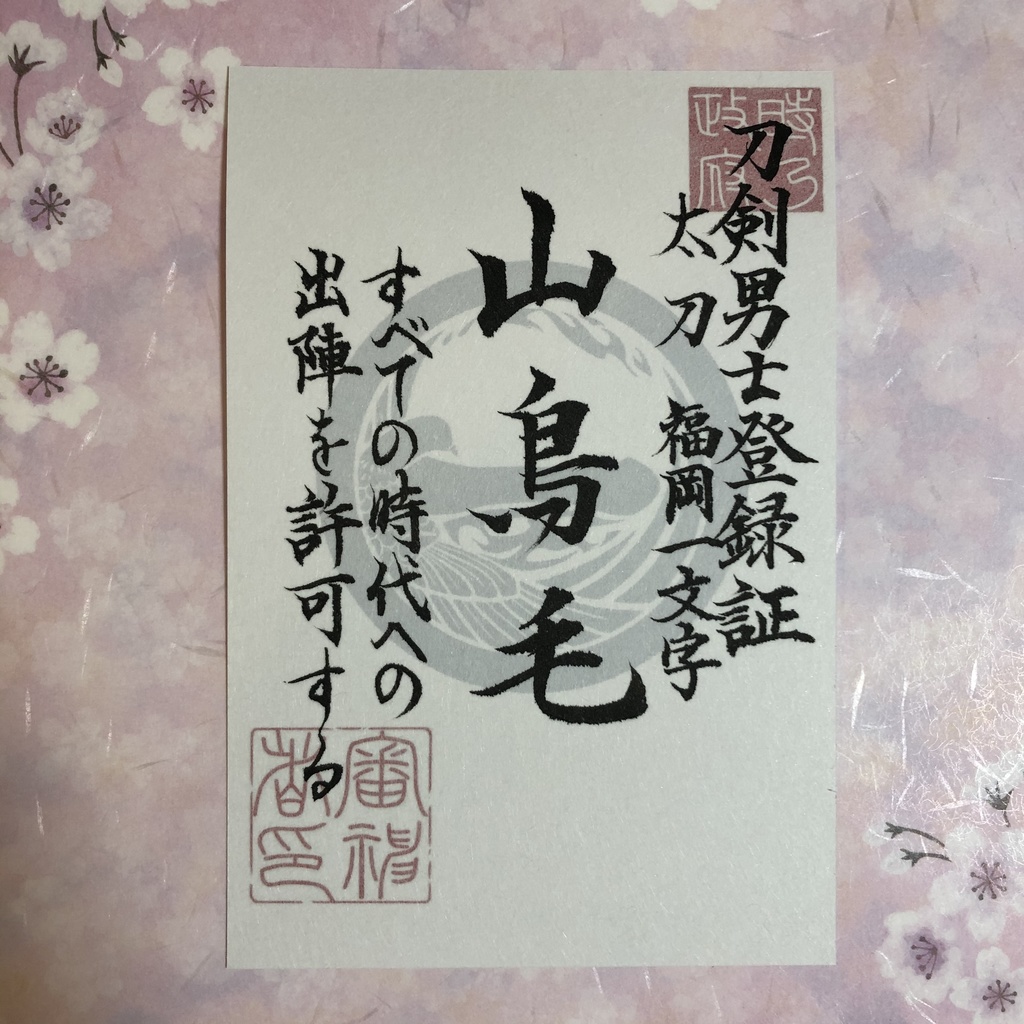 刀剣男士登録証
太刀　福岡一文字
山鳥毛
すべての時代への
出陣を許可する
時乃政府
審神者印